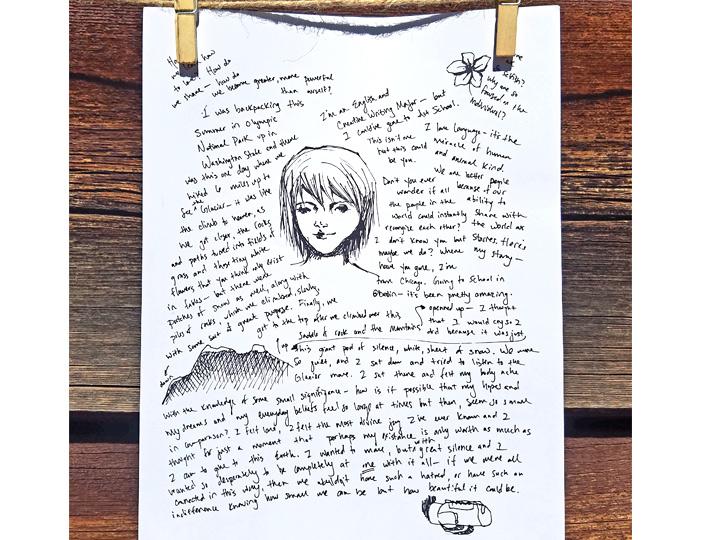 how
to love. How do
we share — how do
we become greater, more powerful
than ourself?
I was backpacking this
Summer in Olympic
National Park up in
Washington State and there
was this one day where we
hiked 6 miles up to
See the Glacier — it was like
the climb to heaven, as
we got closer, the rocks
and paths turned into fields of
grass and those tiny white
flowers that you think only exist
in fables — but there were
patches of snow as well, along with
piles of rocks, which we climbed, slowly,
with some sort of great purpose. Finally, we
got to the top after we climbed over this
saddle of rock and the mountains
opened up —
this giant pad of silence, white, sheet of snow. We were
so quiet, and I sat down and tried to listen to the
Glacier move. I sat there and felt my body ache
with the knowledge of some small significance — how is it possible that my hopes and
my dreams and my everyday beliefs feel so large at times but then, seem so small
in comparison? I felt land, I felt the most divine joy I've ever known and I
thought for just a moment that perhaps my existence is only worth as much as
I can to give to this Earth. I wanted to move, but with great silence and I
wanted so desperately to be completely at one with it all — if we were all
connected in this way, then we wouldn't have such a hatred, or have such an
indifference knowing how small we can be but how beautiful it could be.
I'm an English and
Creative Writing Major — but
I could've gone to Art School.
This isn't one
but this could
be you.
Don't you ever
wonder if all
the people in the
world could instantly
recognize each other?
I don't know you but
maybe we do? Where
have you gone, I'm
from Chicago. Going to School in
Oberlin — it's been pretty amazing.
I thought
that I would cry so I
did because it was just,
why are so
focused on the
individual?
I love language — it's the
miracle of human
and animal kind.
We are better people
because of our
ability to
share with
the world our
stories, flores
my story —